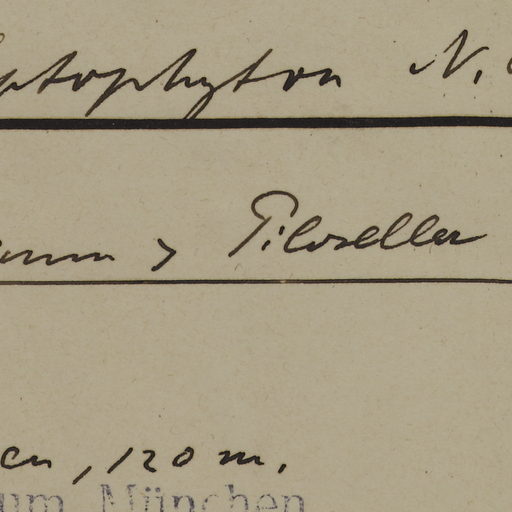 ptophyton N.
num > Pilosella
en, 120 m.
um München